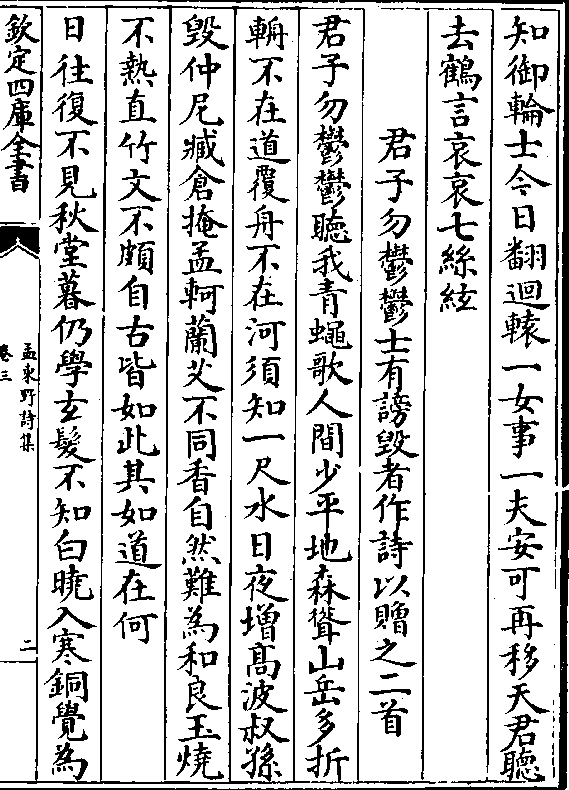 知御輪士今日翻迴轅一女事一夫安可再移天君聽
去鶴言哀哀七絲絃
君子勿鬱鬱士有謗毀者作詩以贈之二首
君子勿鬱鬱聽我青蠅歌人間少平地森聳山岳多折
輈不在道覆舟不在河須知一尺水日夜增高波叔孫
毀仲尼臧倉掩孟軻蘭艾不同香自然難為和良玉燒
不熱直竹文不頗自古皆如此其如道在何
日往復不見秋堂暮仍學玄髮不知白曉入寒銅覺為
欽定四庫全書
孟東野詩集
卷三
二